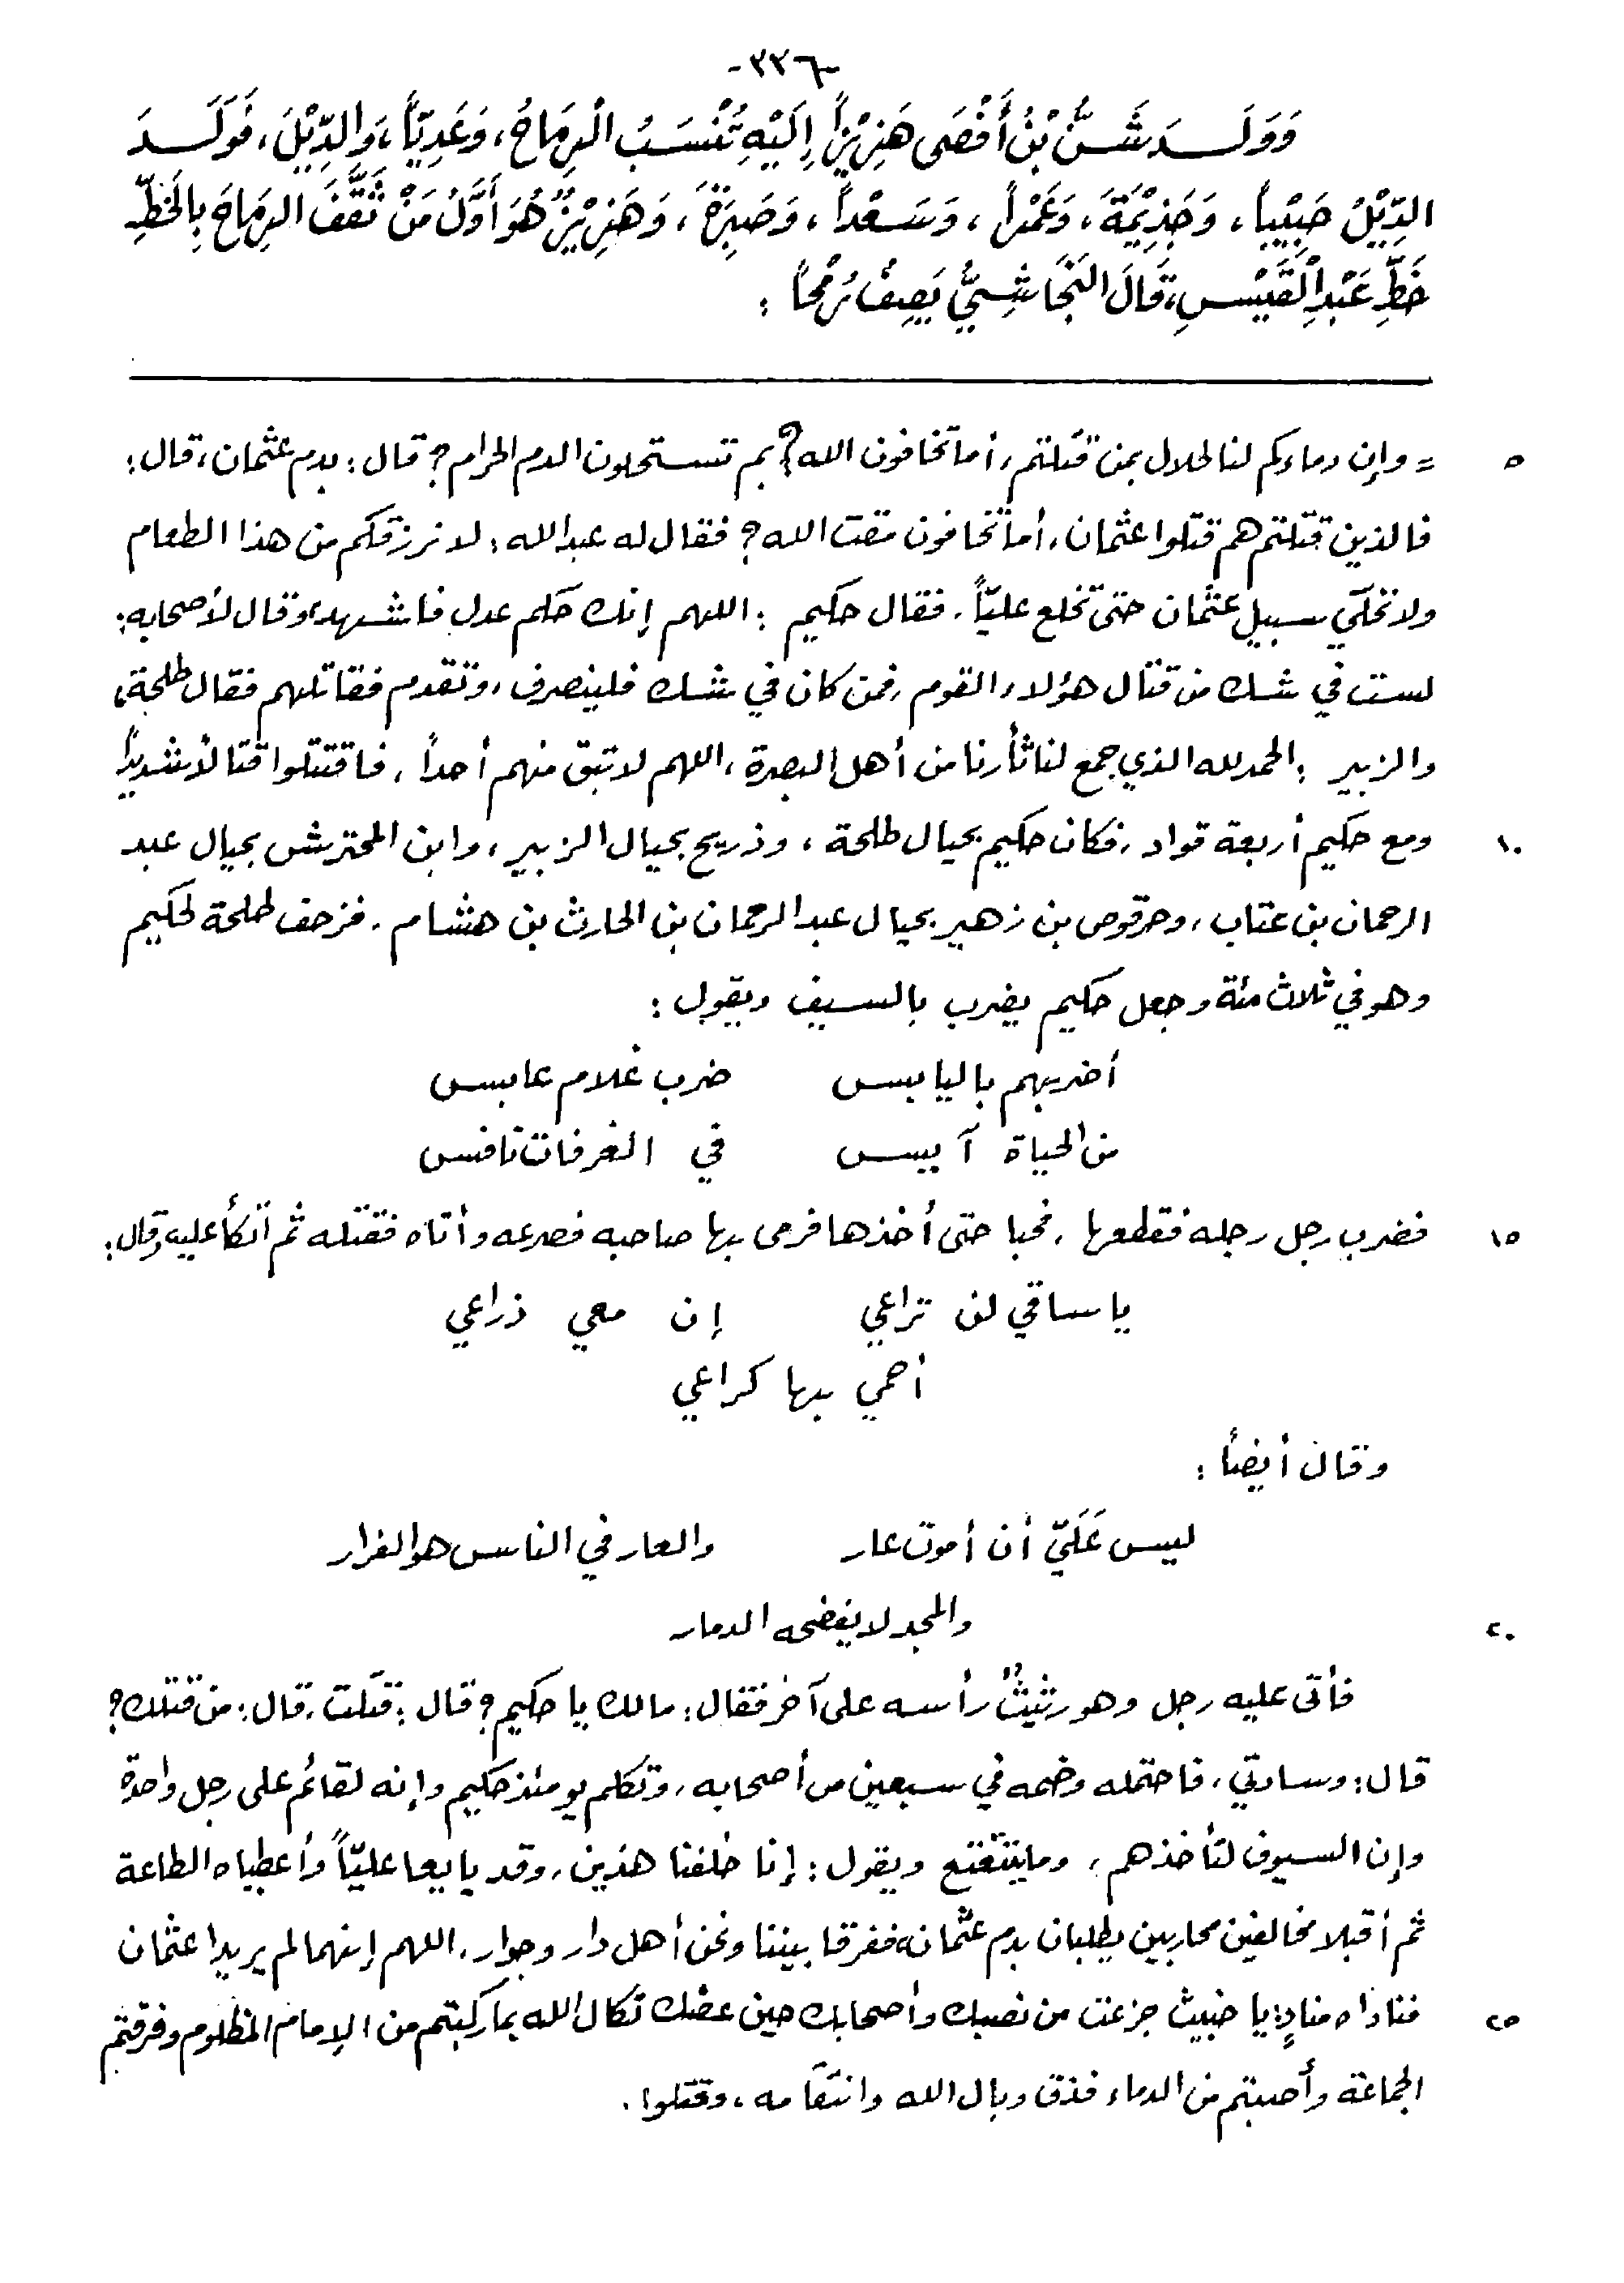 -٣٣٦-
وَوَلَـدَ شَـنُّ بْنُ أَفْصَى هَزِيْزاً إِلَيْهِ تُنْسَبُ الْرِمَاحُ، وَعَدِيّاً، وَالدِّيْلَ، فَوَلَـدَ
الدِّيْلُ حَبِيْباً، وَجَذِيْمَةَ، وَعَمْراً، وَسَعْداً، وَصَبِرَةَ، وَهَزِيْزٌ هُوَ أَوَّلُ مَنْ ثَقَّفَ الرِمَاحَ بِالخَطِّ
خَطِّ عَبْدِ الْقَيْسِ، قَالَ النَجَاشِيُّ يَصِفُ رُمْحاً :
٥ = وإن دماءكم لنا لحلال بمن قَتلتم، أما تخافون الله؟ بم تستحلون الدم الحرام؟ قال: بدم عثمان، قال:
فالذين قتلتم هم قتلوا عثمان، أما تخافون مقت الله؟ فقال له عبدالله: لا نرزقكم من هذا الطعام
ولا نخلّي سبيل عثمان حتى تخلع عليّاً. فقال حكيم : اللهم إنك حَكم عدل فاشهد، وقال لأصحابه:
لست في شك من قتال هؤلاء القوم، فمن كان في شك فلينصرف، وتقدم فقاتلهم فقال طلحة،
والزبير : الحمد لله الذي جمع لنا ثأرنا من أهل البصرة، اللهم لا تبق منهم أحداً، فاقتتلوا قتالاً شديداً
١٠ ومع حكيم أربعة قواد، فكان حكيم بحيال طلحة، وذريح بحيال الزبير، وابن المحترش بحيال عبد
الرحمان بن عتاب، وحرقوص بن زهير بحيال عبد الرحمان بن الحارث بن هشام. فزحف طلحة لحكيم
وهو في ثلاث مئة وجعل حكيم يضرب بالسيف ويقول :
أضربهم باليابس ضرب غلام عابس
من الحياة آيس في الغرفات نافس
١٥ فضرب رجل رجله فقطعها، فحبا حتى أخذها فرمى بها صاحبه فصرعه وأتاه فقتله ثم اتكأ عليه وقال:
يا ساقي لن تراعي إن معي ذراعي
أحمي بها كراعي
وقال أيضاً :
ليس عَلَيّ أن أموت عار والعار في الناس هو الفرار
٢٠ والمجد لا يفضحه الدمار
فأتى عليه رجل وهو رثيثٌ رأسه على آخر فقال: مالك يا حكيم؟ قال: قتلت، قال: من قتلك؟
قال: وسادتي، فاحتمله وضمه في سبعين من أصحابه، وتكلم يومئذ حكيم وإنه لقائم على رجل واحدة
وإن السيوف لتأخذهم، وما يتتعتع ويقول: إنا خلفنا هذين، وقد بايعا عليّاً وأعطياه الطاعة
ثم أقبلا مخالفين محاربين يطلبان بدم عثمان، ففرقا بيننا ونحن أهل دار وجوار، اللهم إنهما لم يريدا عثمان
٢٥ فناداه منادٍ: يا خبيث جزعت من نصبك وأصحابك حين عضك نكال الله بما ركبتم من الإمام المظلوم وفرقتم
الجماعة وأصبتم من الدماء فذق وبال الله وانتقامه، وقتلوا.